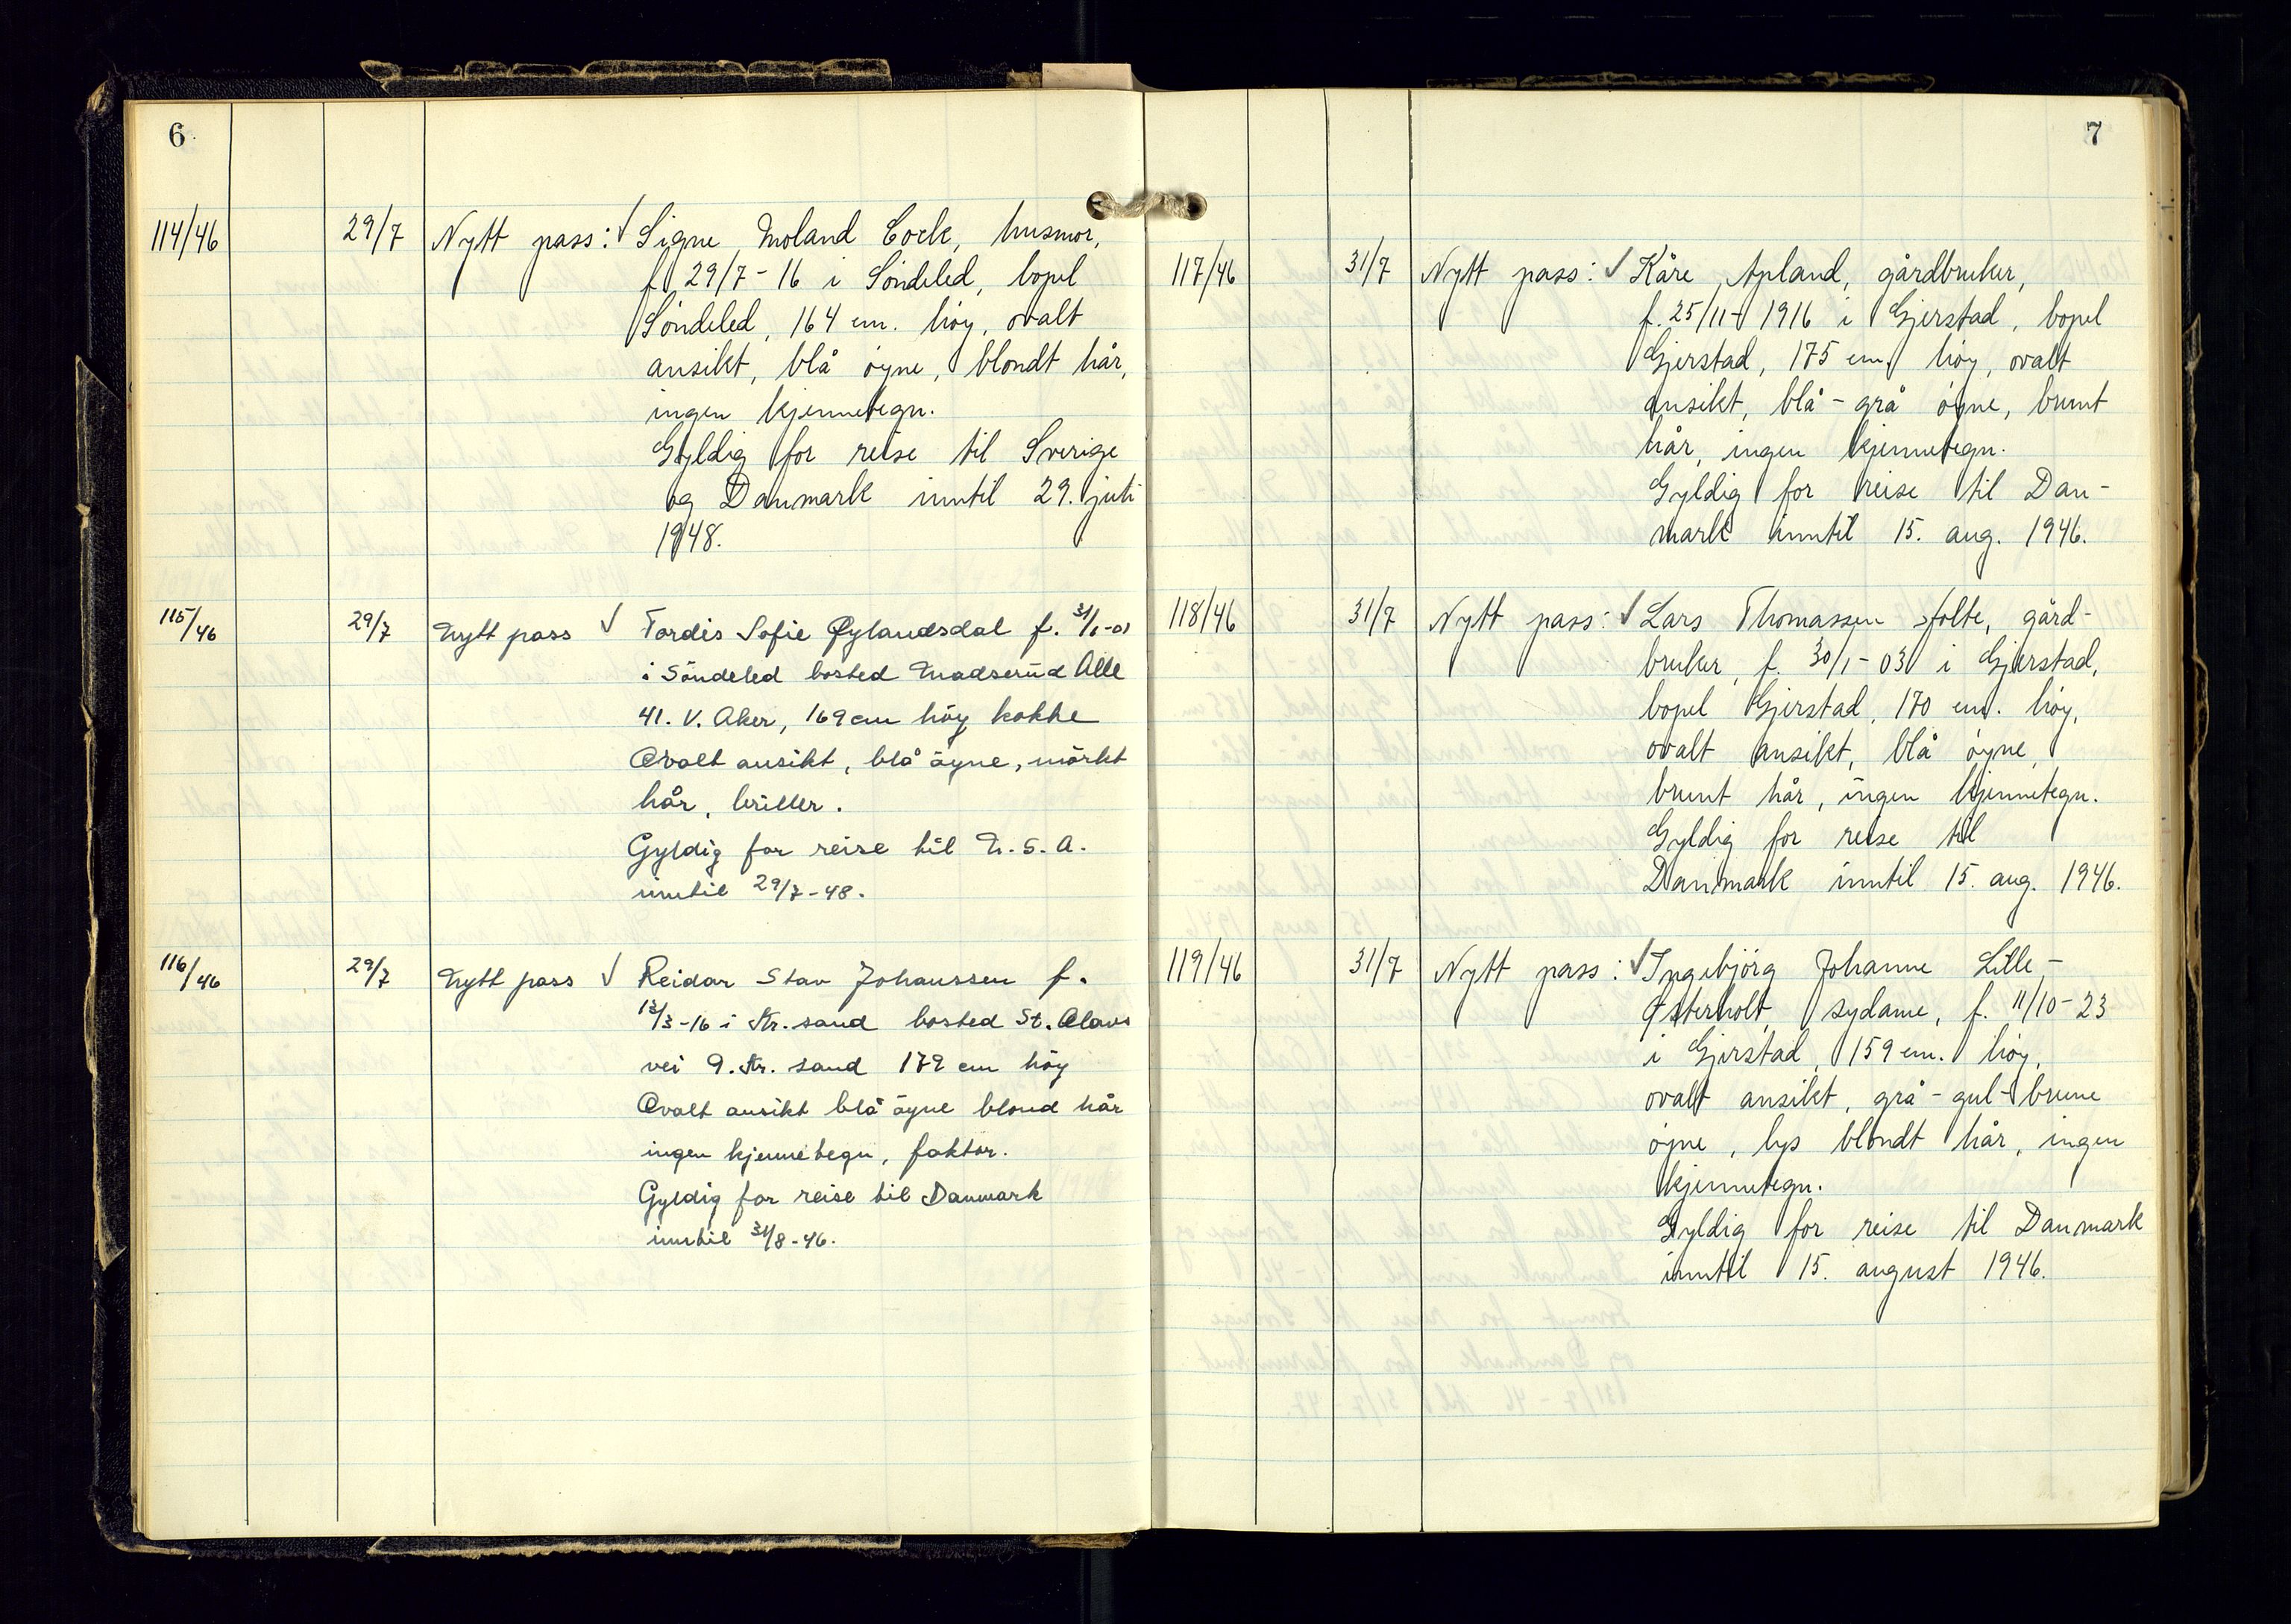 6
114/46 29/7 Nytt pass: √ Signe Moland Cock, husmor,
f. 29/7-16 i Söndeled, bopel
Söndeled, 164 cm. höy, ovalt
ansikt, blå öyne, blondt hår,
ingen kjennetegn.
Gyldig for reise til Sverige
og Danmark inntil 29. juli
1948.
115/46 29/7 Nytt pass √ Tordis Sofie Øylandsdal f.
i Söndeled bosted Madserud Allé
41. V. Aker, 169 cm höy kokke
Ovalt ansikt, blå öyne, mörkt
hår, briller.
Gyldig for reise til U.S.A.
inntil 29/7-48.
116/46 29/7 Nytt pass √ Reidar Stav Johanssen f.
13/3-16 i Kr.sand bosted St. Olavs
vei 9. Kr. sand 179 cm höy
Ovalt ansikt blå öyne blond hår
ingen kjennetegn, faktor.
Gyldig for reise til Danmark
inntil 31/8-46.
7
117/46 31/7 Nytt pass: √ Kåre Apland, gårdbruker,
f. 25/11-1916 i Gjerstad, bopel
Gjerstad, 175 cm. höy, ovalt
ansikt, blå-grå öyne, brunt
hår, ingen kjennetegn.
Gyldig for reise til Dan-
mark inntil 15. aug. 1946.
118/46 31/7 Nytt pass: √ Lars Thomassen Holte, gård-
bruker, f. 30/1-03 i Gjerstad,
bopel Gjerstad, 170 cm. höy,
ovalt ansikt, blå öyne,
brunt hår, ingen kjennetegn.
Gyldig for reise til
Danmark inntil 15. aug. 1946.
119/46 31/7 Nytt pass: √ Ingebjörg Johanne Lille-
Østerholt, sydame, f. 11/10-23
i Gjerstad, 159 cm. höy,
ovalt ansikt, grå-gul-brune
öyne, lys blondt hår, ingen
kjennetegn.
Gyldig for reise til Danmark
inntil 15. august 1946.